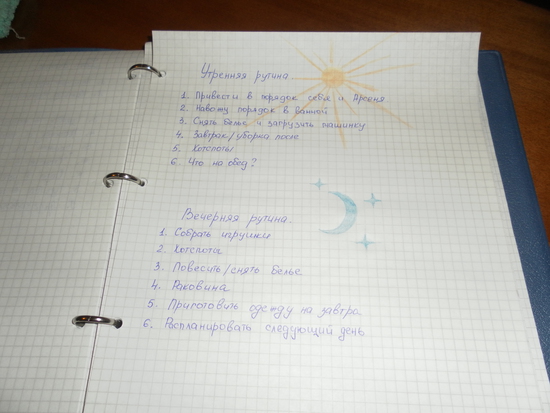 Утренняя рутина
1. Привести в порядок себя и Арсения
2. Навожу порядок в ванной
3. Снять белье и загрузить машинку
4. Завтрак/уборка после
5. Хотспоты
6. Что на обед?
Вечерняя рутина
1. Собрать игрушки
2. Хотспоты
3. Повесить/снять белье
4. Раковина
5. Приготовить одежду на завтра
6. Распланировать следующий день